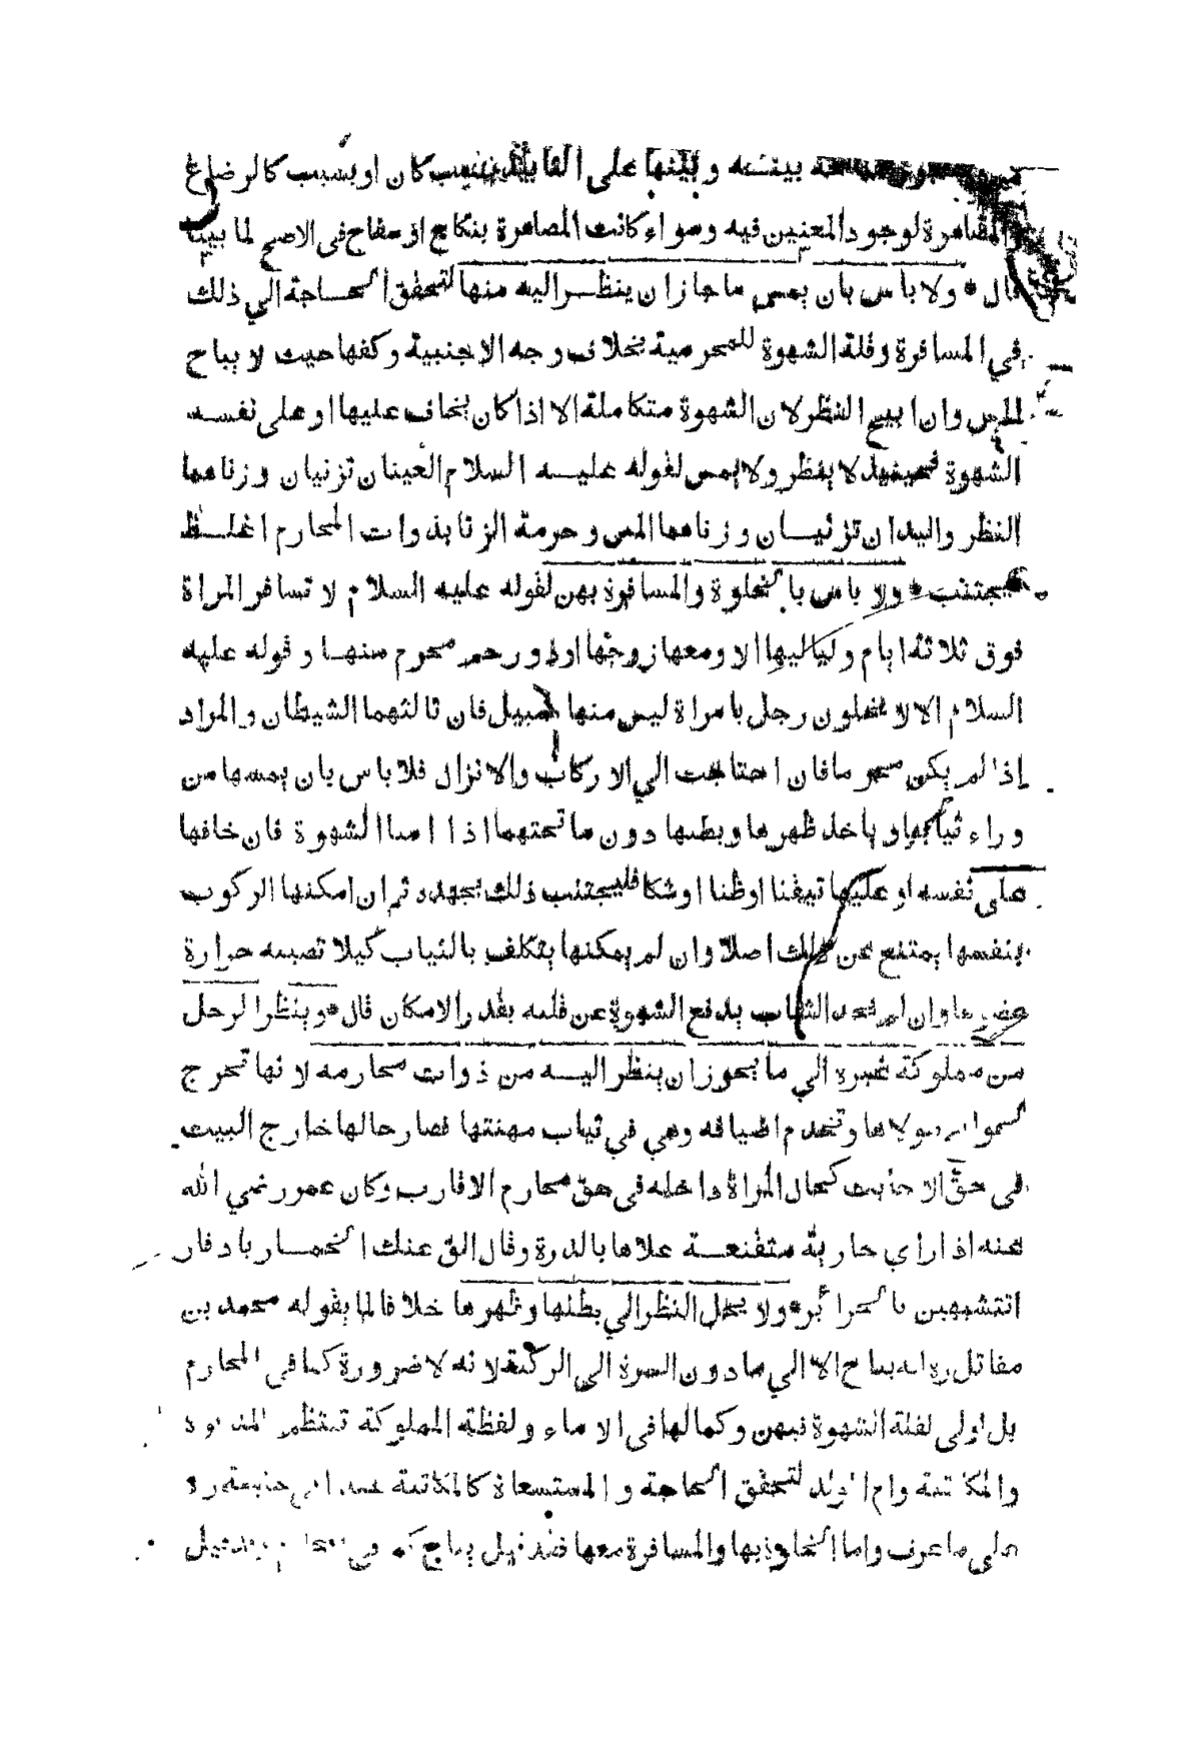 بينه وبينها على التابيد بنسب كان او بسبب كالرضاع
والمصاهرة لوجود المعنيين فيه وسواء كانت المصاهرة بنكاح او سفاح في الاصح لما بينا
قال * ولا باس بان يمس ما جاز ان ينظر اليه منها لتحقق الحاجة الي ذلك
في المسافرة وقلة الشهوة للمحرمية بخلاف وجه الاجنبية وكفها حيث لا يباح
المس وان ابيح النظر لان الشهوة متكاملة الا اذا كان يخاف عليها او على نفسه
الشهوة فحينئذ لا ينظر ولا يمس لقوله عليه السلام العينان تزنيان وزناهما
النظر واليدان تزنيان وزناهما المس وحرمة الزنا بذوات المحارم اغلظ
فيجتنب * ولا باس بالخلوة والمسافرة بهن لقوله عليه السلام لا تسافر المراة
فوق ثلاثة ايام ولياليها الا ومعها زوجها او ذو رحم محرم منها وقوله عليه
السلام الا لا يخلون رجل بامراة ليس منها بسبيل فان ثالثهما الشيطان والمراد
اذا لم يكن محرما فان احتاجت الي الاركاب والانزال فلا باس بان يمسها من
وراء ثيابها وياخذ ظهرها وبطنها دون ما تحتهما اذا امنا الشهوة فان خافها
على نفسه او عليها تيقنا او ظنا او شكا فليجتنب ذلك بجهده ثم ان امكنها الركوب
بنفسها يمتنع عن ذلك اصلا وان لم يمكنها يتكلف بالثياب كيلا تصيبه حرارة
عضوها وان لم يجد الثياب يدفع الشهوة عن قلبه بقدر الامكان قال * وينظر الرجل
من مملوكة غيره الي ما يجوز ان ينظر اليه من ذوات محارمه لانها تخرج
لحوائج مولاها وتخدم اضيافه وهي في ثياب مهنتها فصار حالها خارج البيت
في حق الاجانب كحال المراة داخله في حق محارم الاقارب وكان عمر رضي الله
عنه اذا رأي جارية متقنعة علاها بالدرة وقال الق عنك الخمار يا دفار
اتتشبهين بالحرائر * ولا يحل النظر الي بطنها وظهرها خلافا لما يقوله محمد بن
مقاتل ره انه يباح الا الي ما دون السرة الي الركبة لانه لا ضرورة كما في المحارم
بل اولى لقلة الشهوة فيهن وكمالها في الاماء ولفظة المملوكة تنتظم المدبرة
والمكاتبة وام الولد لتحقق الحاجة والمستسعاة كالمكاتبة عند ابي حنيفة ره
على ما عرف واما الخلوة بها والمسافرة معها فقد قيل يباح كما في المحارم وقد قيل